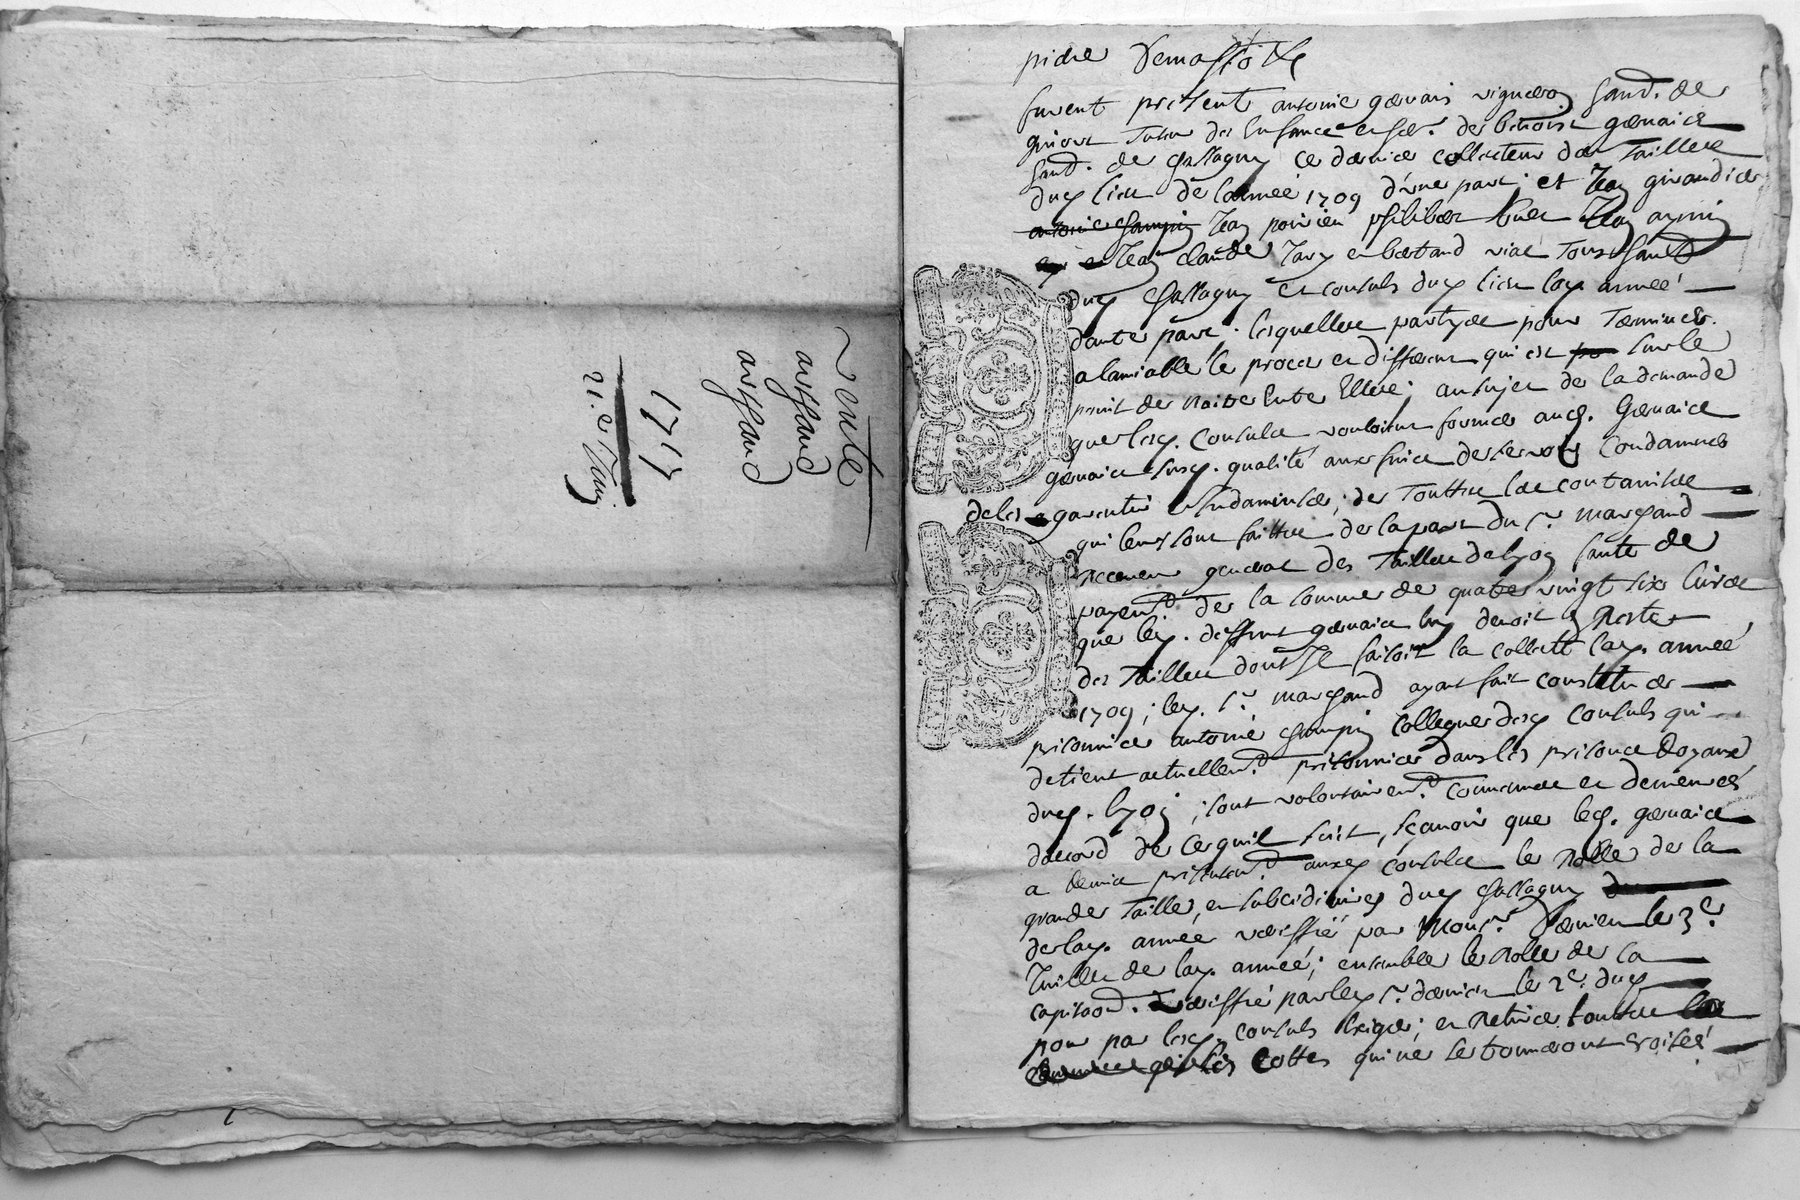 vente
arthaud
arthaud
1715
21.e Juin
furent présents antoine gervais vigneron hand. de
tuteur des Enfance de benoist gervaice
hand. de Chassagny ce dernier collecteur des Tailles
dud lieu de lannée 1709 d'une part; et Jean giraudier
antoine champin Jean poirieu philibert Jean aymin
Jean claude Jary et bertand vial Tous hand
dud Chassagny et consuls dud lieu lad année
dautre part. lesquelles partyes pour Terminer
alamiable le proces et different qui est sur le
point de naitre Entre Elles; au sujet de la demande
que lesd. Consuls vouloient former aud. Gervaice
gervaice susd. qualité aux fins de se voir Condamner
de les garentir et indamniser; de Touttes les contraintes
qui leurs sont faittes de la part du Sr. marchand
receveur general des Tailles de lyon faute de
payemt. de la somme de quatre vingt six livres
que led. deffunt gervaice luy devoit de Reste
des Tailles dont Il faisoit la collecte lad. année
1709; led. Sr. marchand ayant fait constituer
prisonnier antoine champin Collegue desd Consuls qui
detient actuellemt. prisonnier dans les prisons Royaux
dud. lyon; sont volontairemt. Convenues et demeurées
daccord de ce quil suit, sçavoir que led. gervaice
a remis presentemt. auxd Consuls le Rolle de la
grande Taille, et subcidiaires dud Chassagny
de lad. année veriffié par Monsr. le 3e.
Juillet de lad. année; ensemble le Rolle de la
capitaon. veriffié par led Sr. le 2e. dud
pour par lesd. consuls Exiger; et Retirer touttes les
cottes qui ne se trouveront croisés